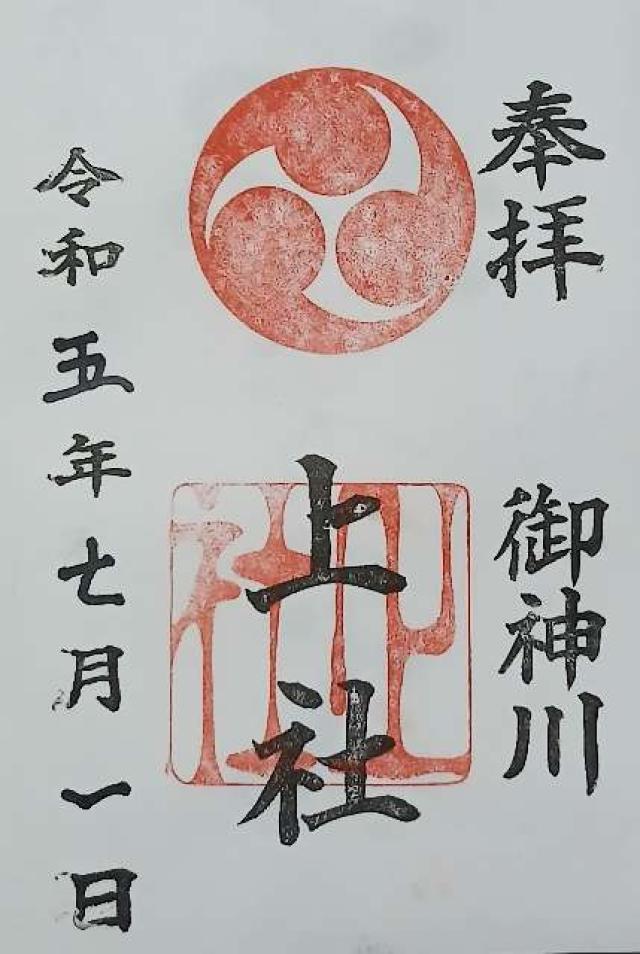 奉拝
御神川
上社
令和五年七月一日